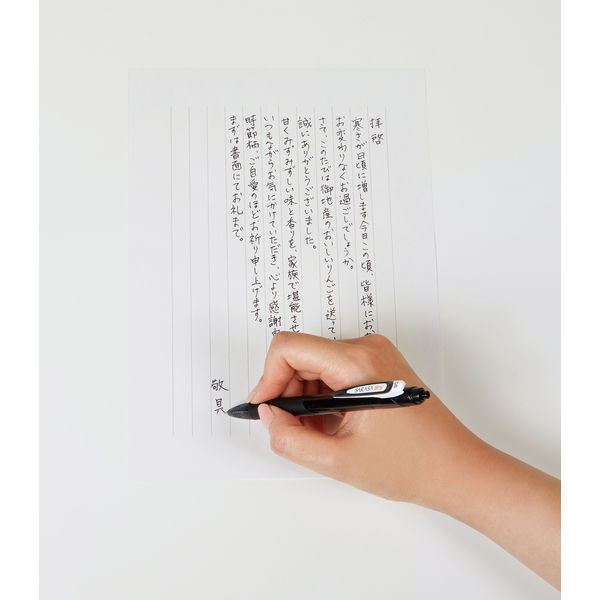 拝啓
寒さが日頃に増します今日この頃、皆様にお
お変わりなくお過ごしでしょうか。
さて、このたびは御地産のおいしいりんごを送って
誠にありがとうございました。
甘くみずみずしい味と香りを、家族で堪能させ
いつもながらお気にかけていただき、心より感謝
時節柄、ご自愛のほどお祈り申し上げます。
まずは書面にてお礼まで。
敬具
SARASA dry